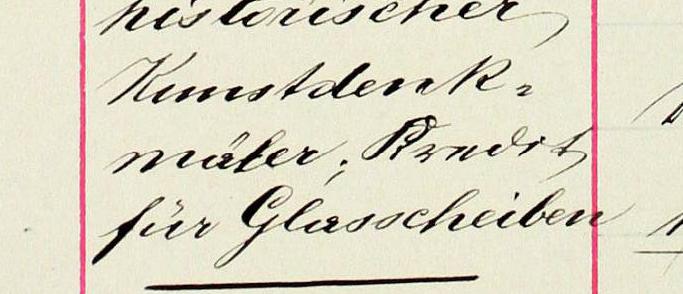 historischer
Kunstdenk-
mäler; Kredit
für Glasscheiben